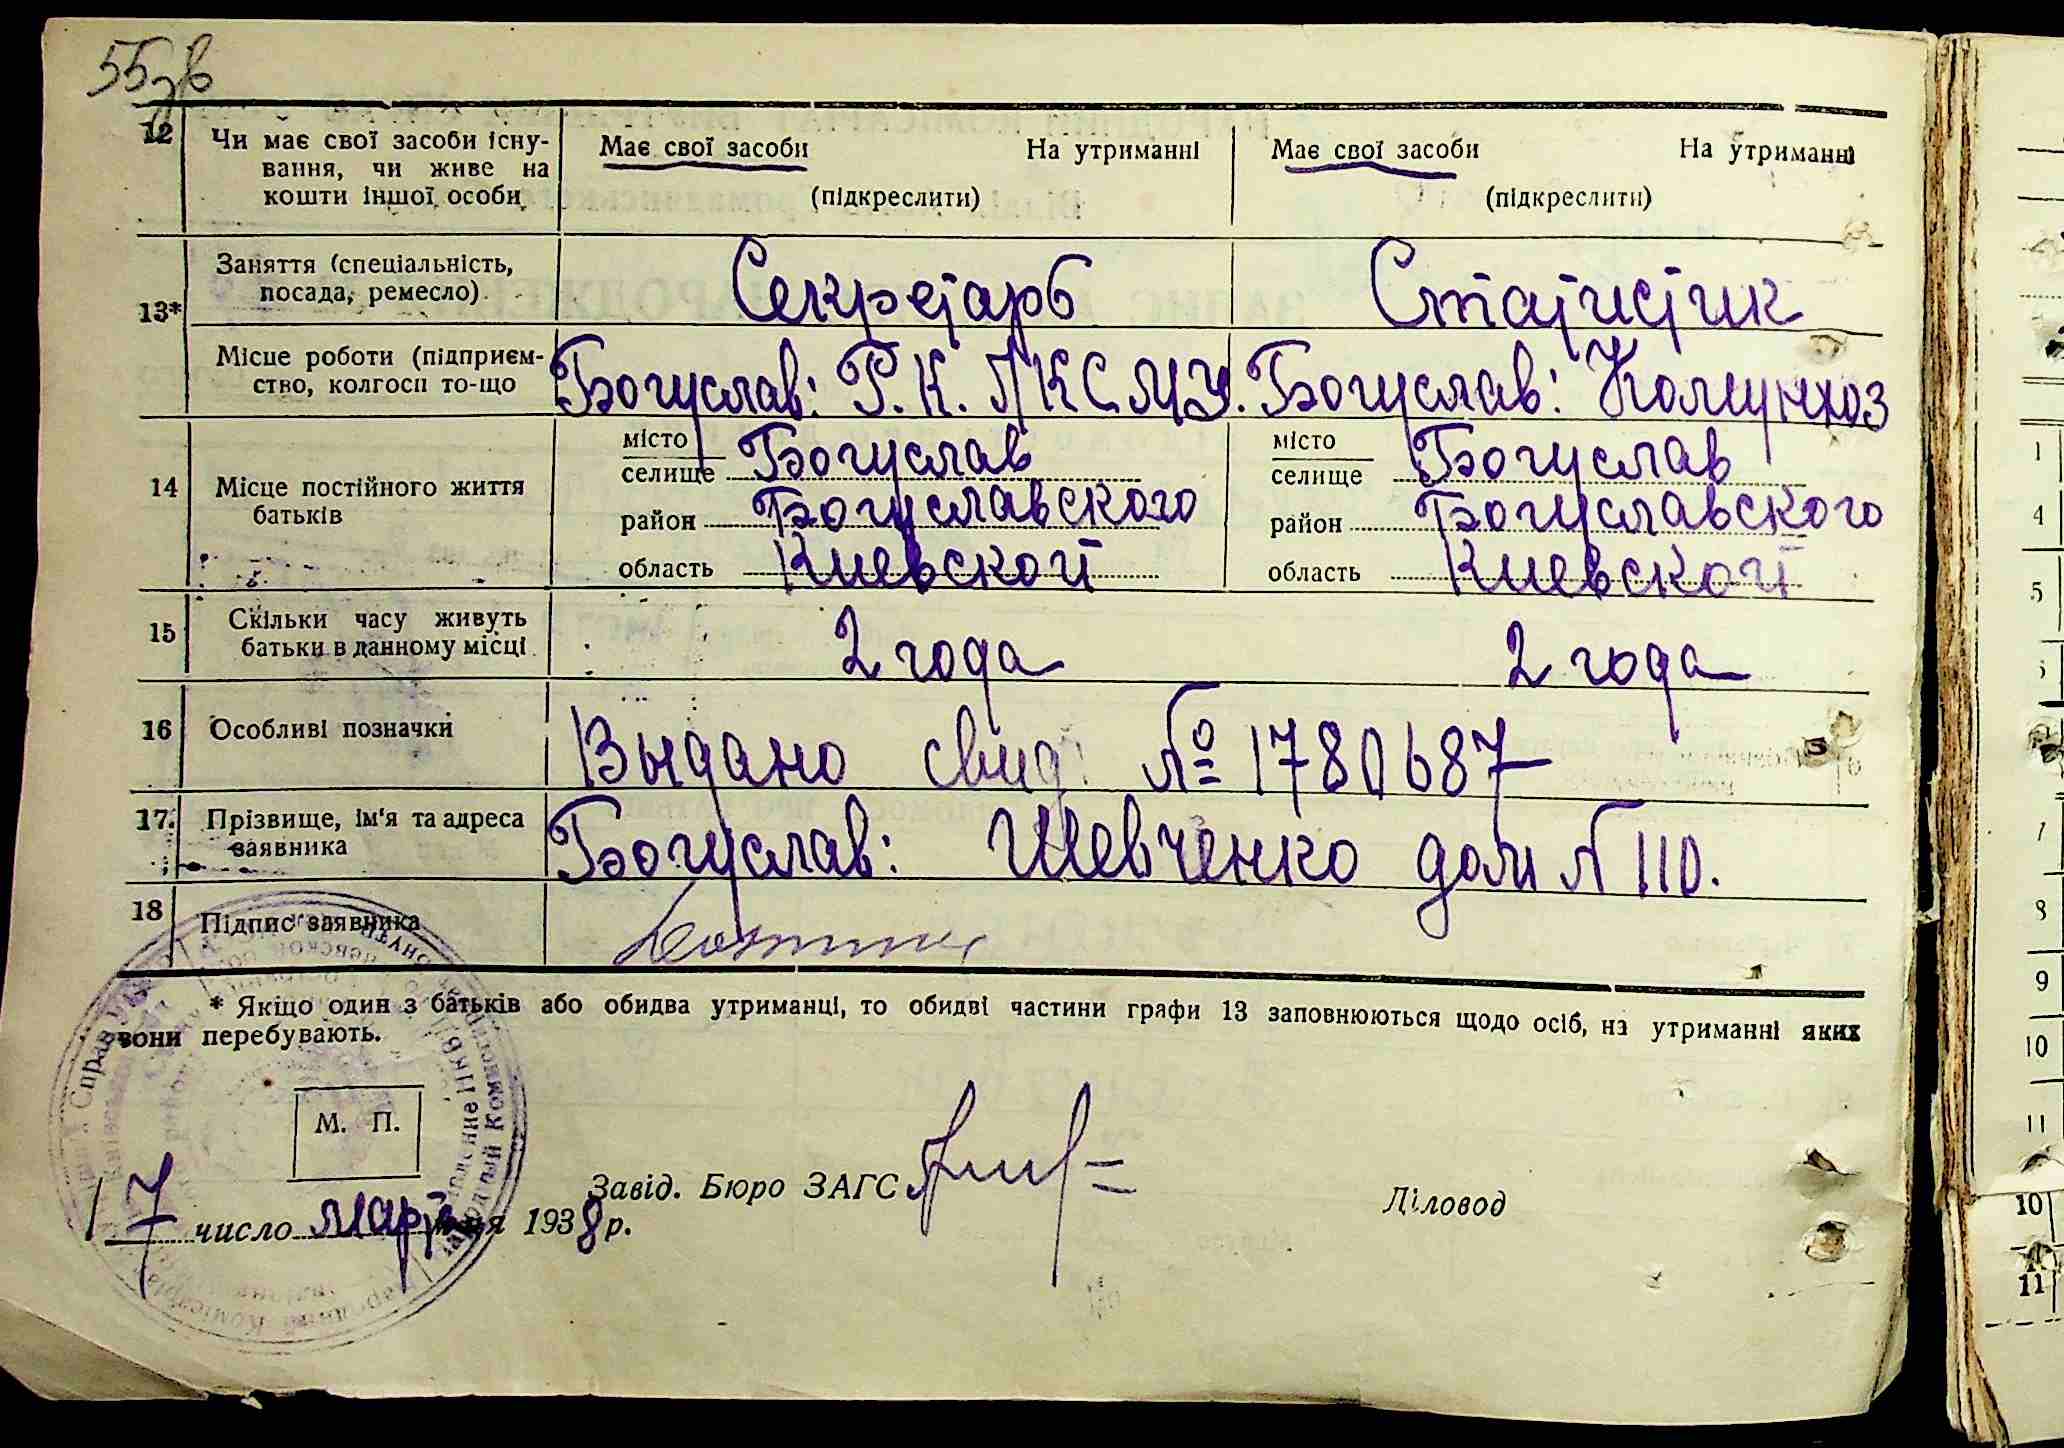 55зв
12 Чи має свої засоби існу- Має свої засоби На утриманні Має свої засоби На утриманні
вання, чи живе на
кошти іншої особи (підкреслити) (підкреслити)
13* Заняття (спеціальність, Секретарь Статистик
посада, ремесло)
Місце роботи (підприєм- Богуслав: Р.К. ЛКСМУ. Богуслав: Комунхоз
ство, колгосп то-що
14 Місце постійного життя місто Богуслав місто Богуслав
батьків селище селище
район Богуславского район Богуславского
область Киевской область Киевской
15 Скільки часу живуть 2 года 2 года
батьки в данному місці
16 Особливі позначки Выдано свид: № 1780687
17. Прізвище, ім'я та адреса Богуслав: Шевченко дом № 110.
заявника
18 Підпис заявника
* Якщо один з батьків або обидва утриманці, то обидві частини графи 13 заповнюються щодо осіб, на утриманні яких
вони перебувають.
М. П.
Завід. Бюро ЗАГС Діловод
17 число марта 1938 р.
1
4
5
7
8
9
10
11
10
11